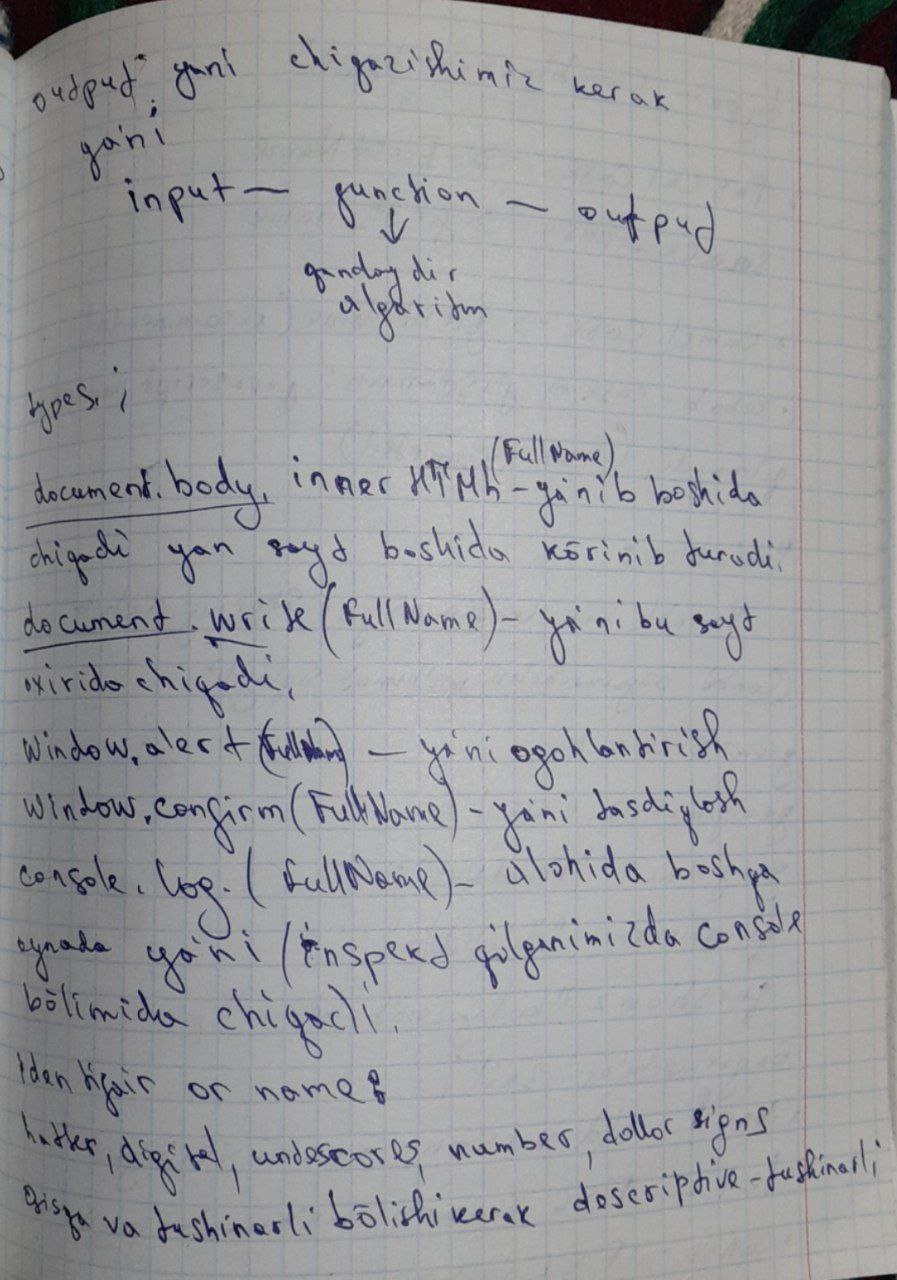 output yani chiqazishimiz kerak
ya'ni
input — function — output
↓
qandaydir
algaritm
types:
(FullName)
document.body, inner HTML - ya'nib boshida
chiqadi yan sayt boshida körinib turadi.
document.write (FullName) - ya'ni bu sayt
oxirida chiqadi,
Window.alert (FullNam) — ya'ni ogohlantirish
Window.confirm (FullName) - ya'ni tasdiqlash
console.log. (FullName) - alohida boshqa
oynada ya'ni (inspekt qilganimizda console
bölimida chiqadi.
or name
digital, underscores, number, dollor signs
qisqa va tushinarli bölishi kerak descriptive - tushinarli